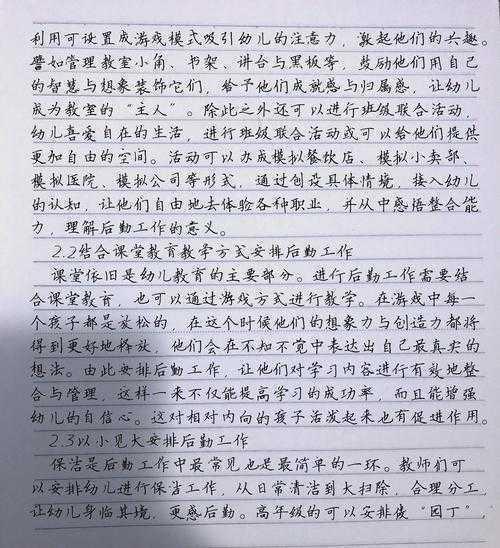 利用可设置成游戏模式吸引幼儿的注意力，激起他们的兴趣。
譬如管理教室小角、书架、讲台与黑板等，鼓励他们用自己
的智慧与想象装饰它们，给予他们成就感与归属感，让幼儿
成为教室的“主人”。除此之外还可以进行班级联合活动，
幼儿喜爱自在的生活，进行班级联合活动或可以给他们提供
更加自由的空间。活动可以办成模拟餐饮店、模拟小卖部、
模拟医院、模拟公司等形式，通过创设具体情境，接入幼儿
的认知，让他们自由地去体验各种职业，并从中感悟整合能
力，理解后勤工作的意义。
2.2结合课堂教育教学方式安排后勤工作
课堂依旧是幼儿教育的主要部分。进行后勤工作需要结
合课堂教育，也可以通过游戏方式进行教学。在游戏中每一
个孩子都是放松的，在这个时候他们的想象力与创造力都将
得到更好地释放，他们会在不知不觉中表达出自己最真实的
想法。由此安排后勤工作，让他们对学习内容进行有效地整
合与管理，这样一来不仅能提高学习的成功率，而且能增强
幼儿的自信心。这对相对内向的孩子活泼起来也有促进作用。
2.3以小见大安排后勤工作
保洁是后勤工作中最常见也是最简单的一环。教师们可
以安排幼儿进行保洁工作，从日常清洁到大扫除，合理分工，
让幼儿身临其境，更感后勤。高年级的可以安排使“园丁”，